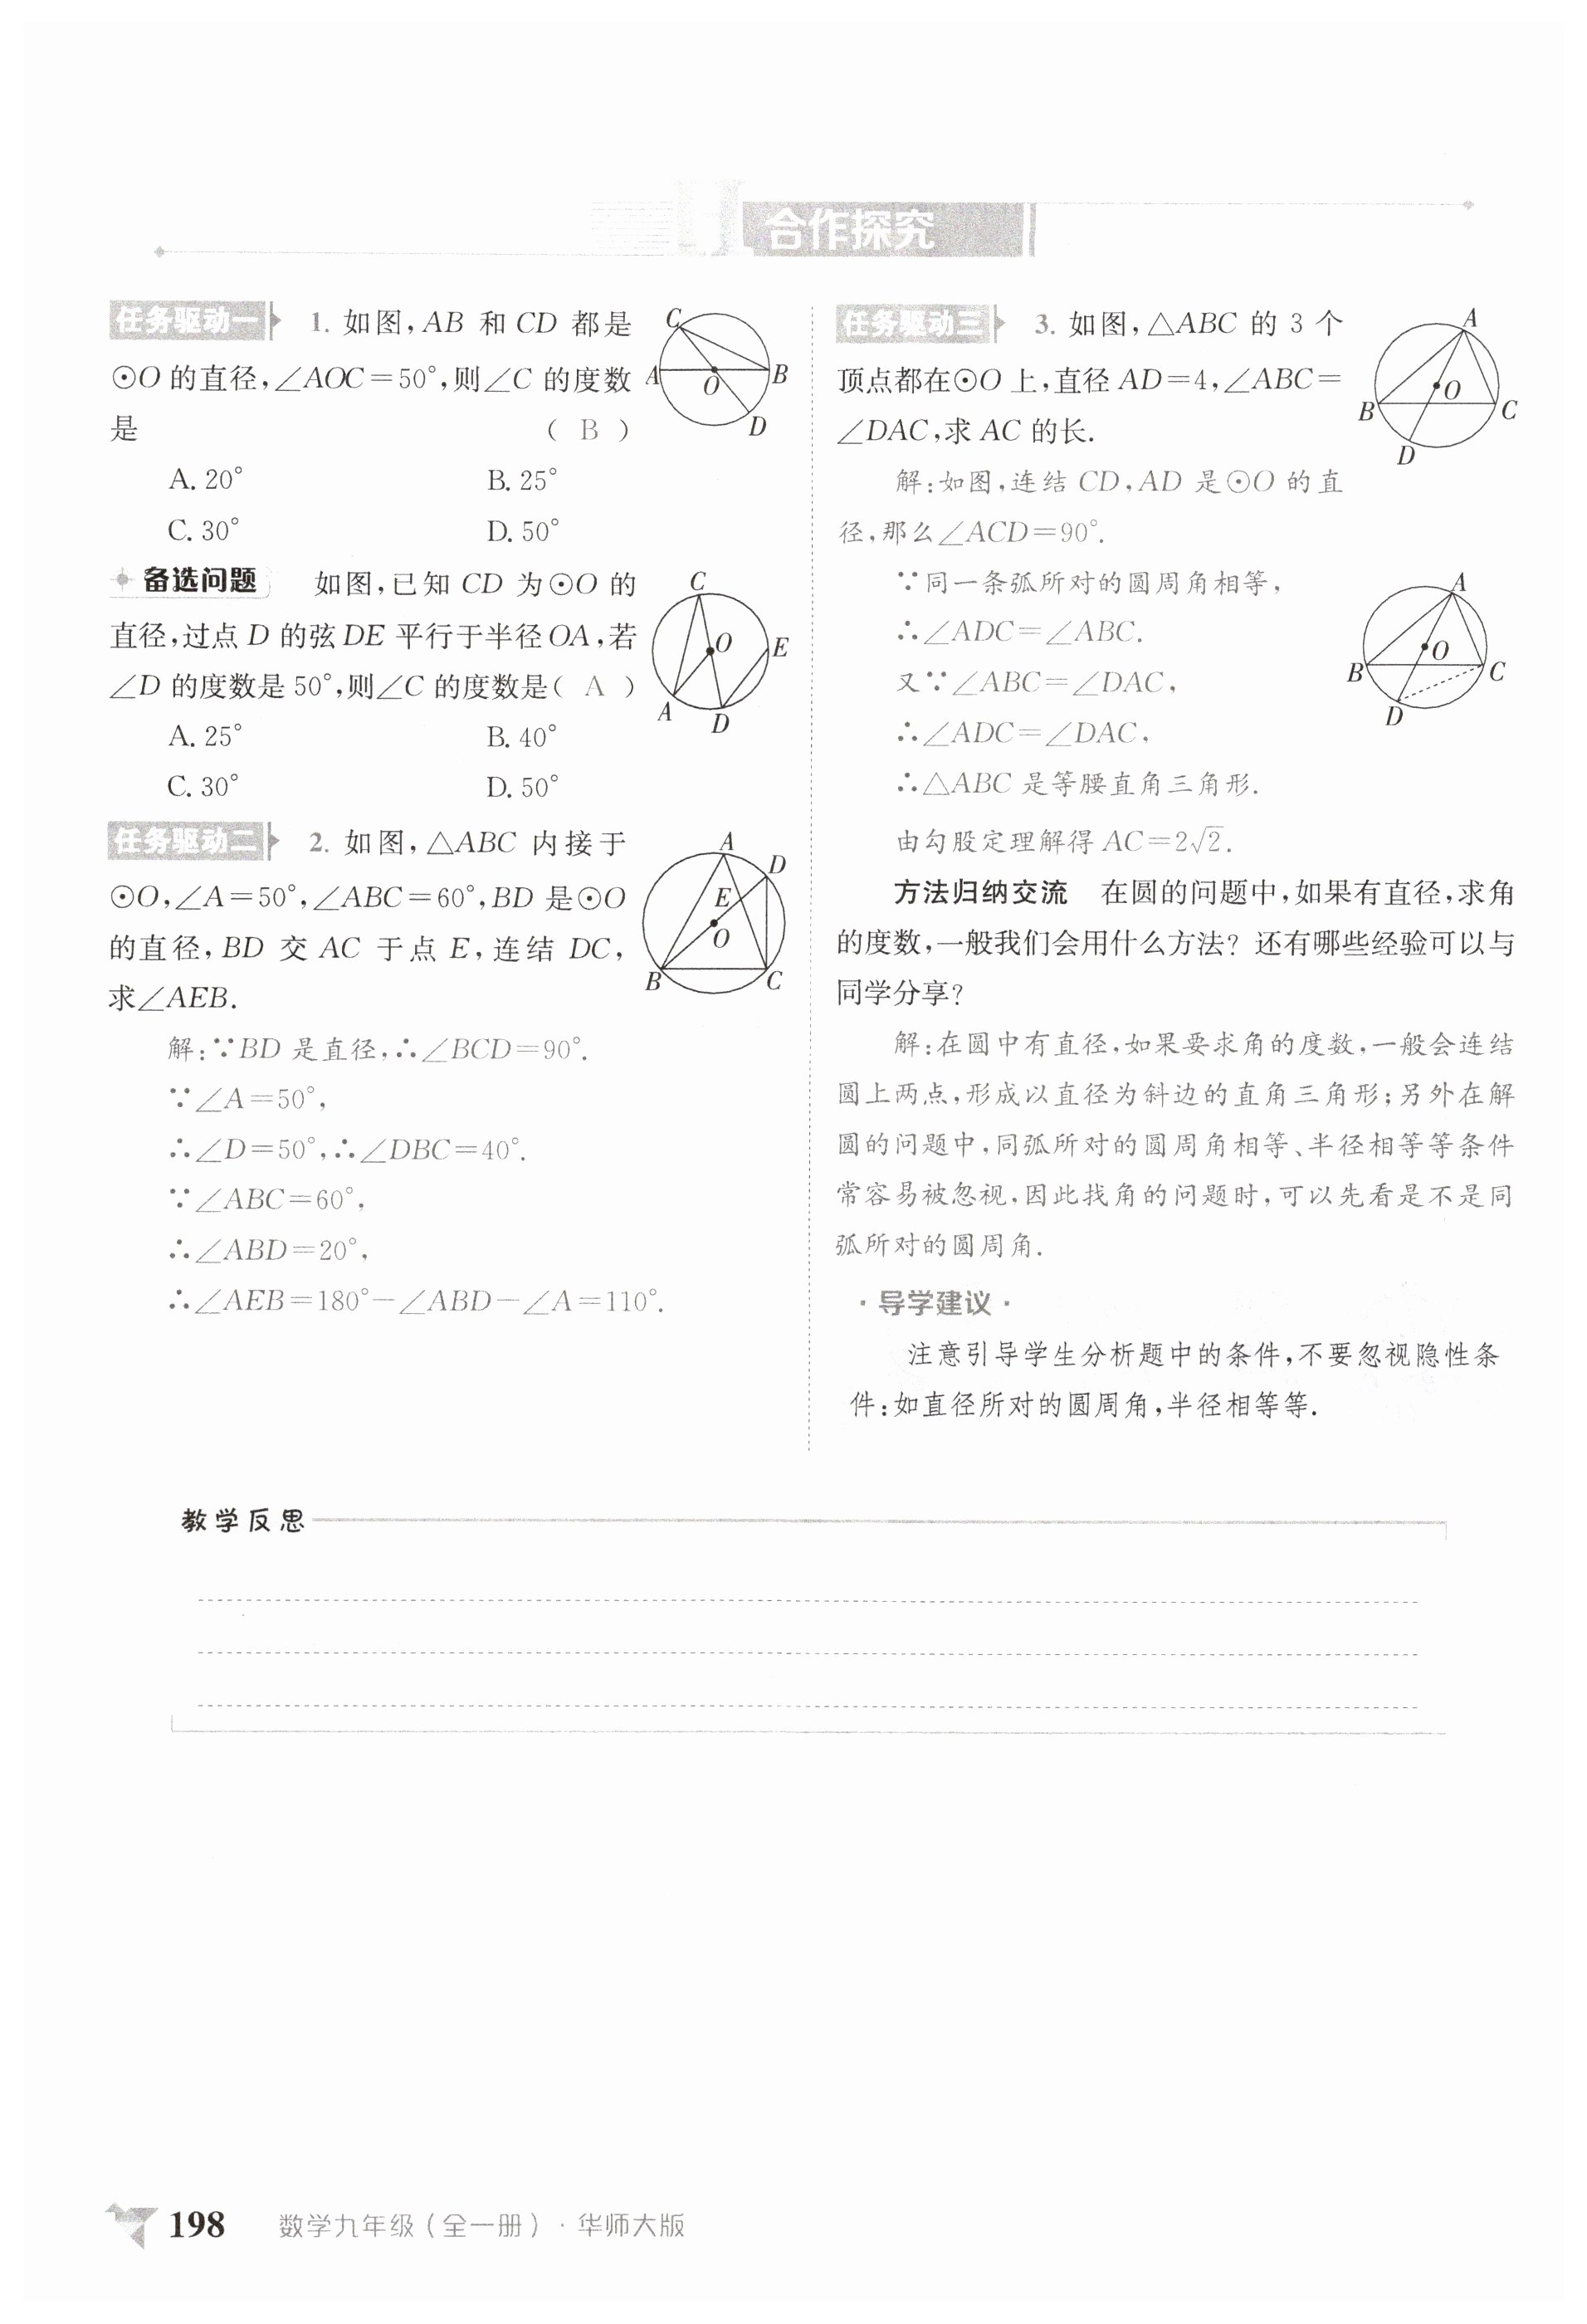 合作探究
任务驱动一 1. 如图,AB 和 CD 都是
⊙O 的直径,∠AOC=50°,则∠C 的度数
是 ( B )
A. 20° B. 25°
C. 30° D. 50°
C
A
O
B
D
备选问题 如图,已知 CD 为⊙O 的
直径,过点 D 的弦 DE 平行于半径 OA,若
∠D 的度数是 50°,则∠C 的度数是( A )
A. 25° B. 40°
C. 30° D. 50°
C
O
E
A
D
任务驱动二 2. 如图,△ABC 内接于
⊙O,∠A=50°,∠ABC=60°,BD 是⊙O
的直径,BD 交 AC 于点 E,连结 DC,
求∠AEB.
A
D
E
O
B
C
解:∵BD 是直径,∴∠BCD=90°.
∵∠A=50°,
∴∠D=50°,∴∠DBC=40°.
∵∠ABC=60°,
∴∠ABD=20°,
∴∠AEB=180°-∠ABD-∠A=110°.
任务驱动三 3. 如图,△ABC 的 3 个
顶点都在⊙O 上,直径 AD=4,∠ABC=
∠DAC,求 AC 的长.
A
O
B
C
D
解:如图,连结 CD,AD 是⊙O 的直
径,那么∠ACD=90°.
∵同一条弧所对的圆周角相等,
∴∠ADC=∠ABC.
又∵∠ABC=∠DAC,
∴∠ADC=∠DAC,
∴△ABC 是等腰直角三角形.
由勾股定理解得 AC=2√2.
A
O
B
C
D
方法归纳交流 在圆的问题中,如果有直径,求角
的度数,一般我们会用什么方法? 还有哪些经验可以与
同学分享?
解:在圆中有直径,如果要求角的度数,一般会连结
圆上两点,形成以直径为斜边的直角三角形;另外在解
圆的问题中,同弧所对的圆周角相等、半径相等等条件
常容易被忽视,因此找角的问题时,可以先看是不是同
弧所对的圆周角.
·导学建议·
注意引导学生分析题中的条件,不要忽视隐性条
件:如直径所对的圆周角,半径相等等.
教学反思
198 数学九年级(全一册)·华师大版